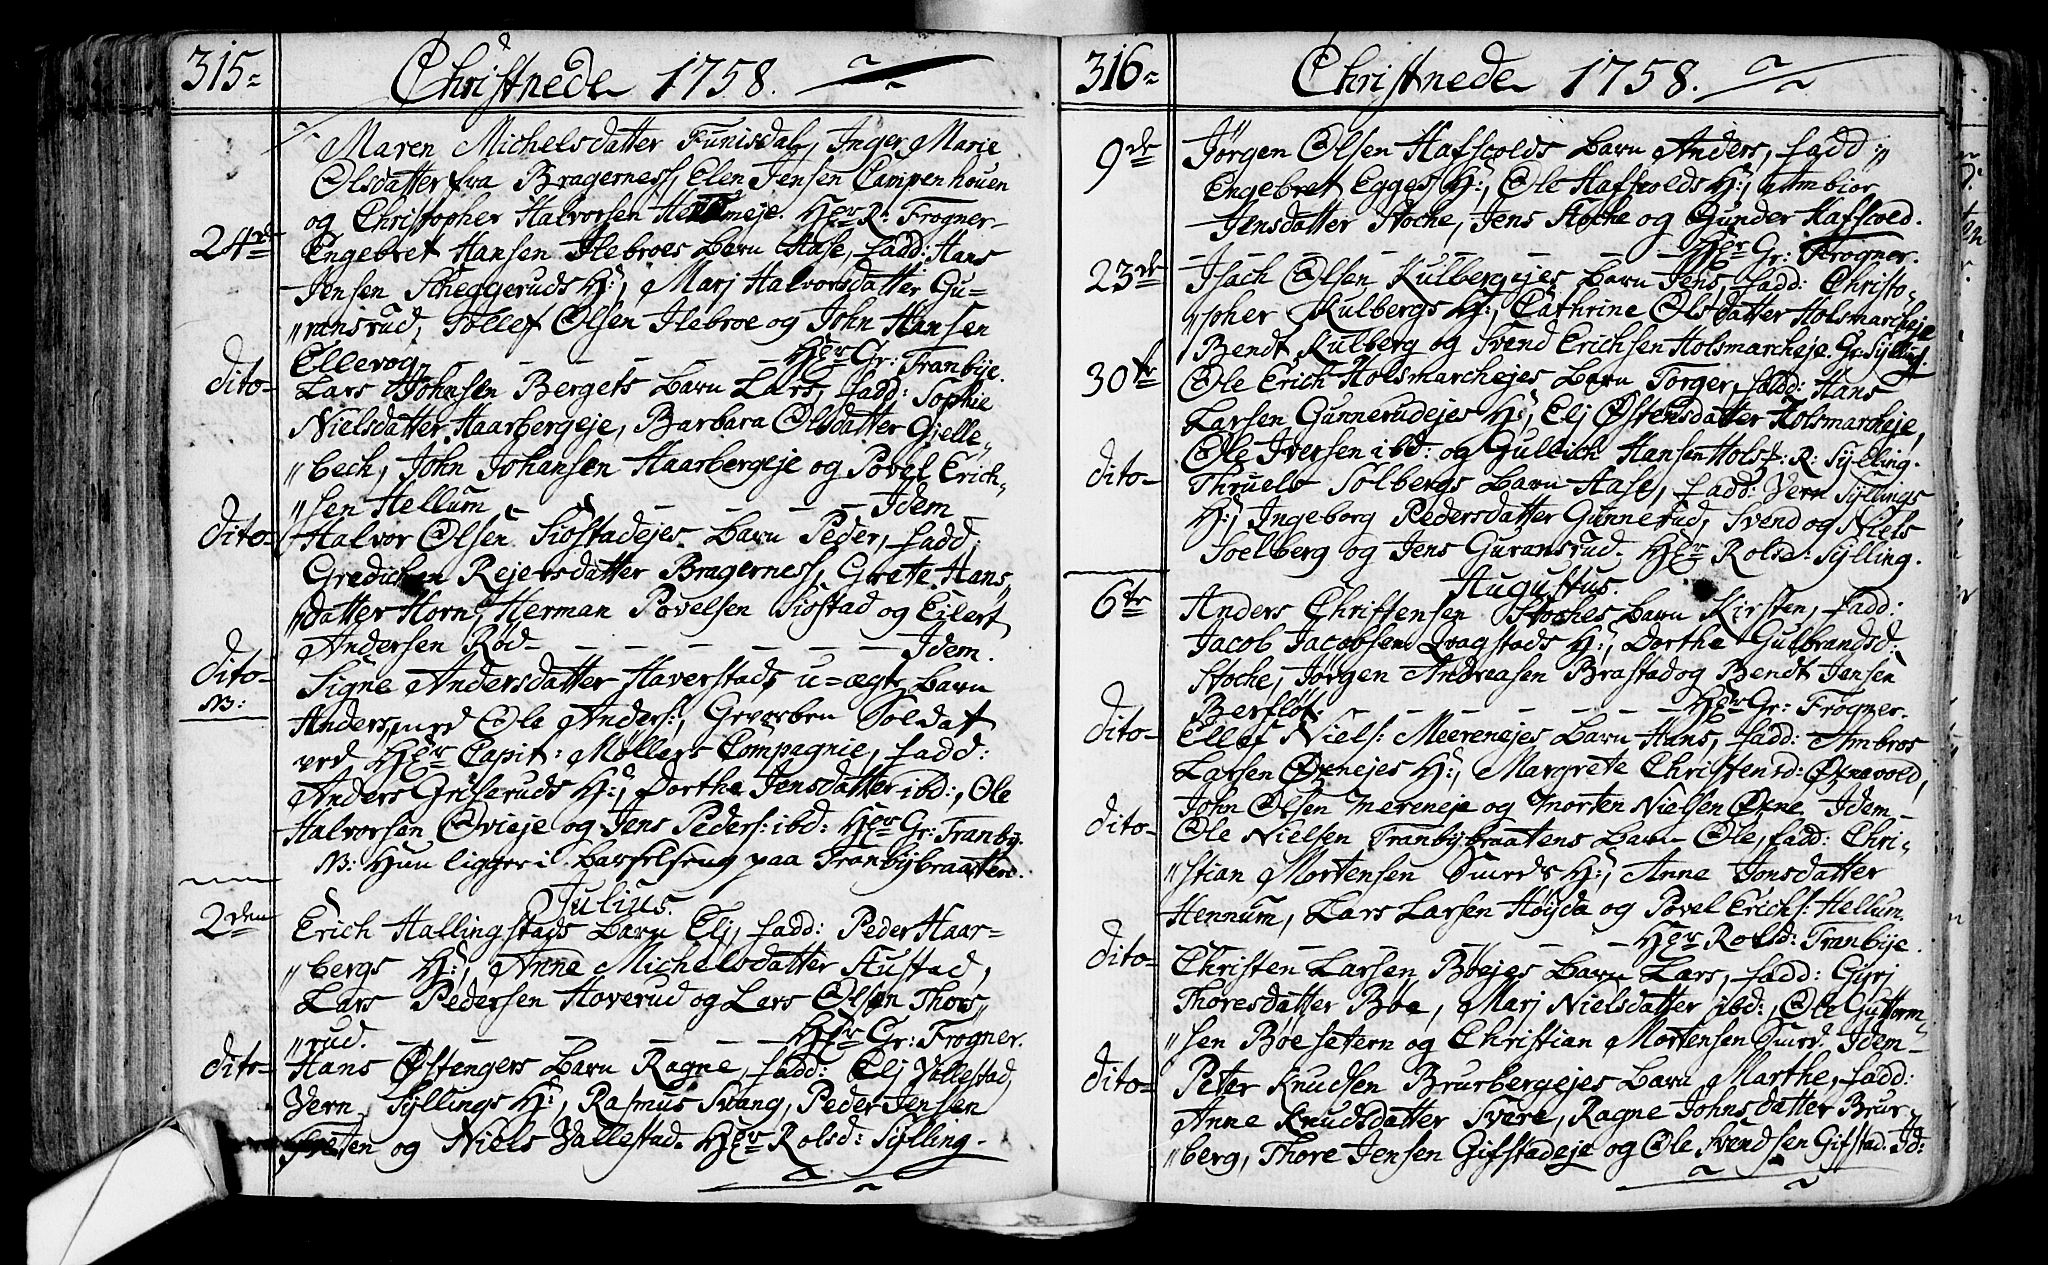 315
Christnede 1758.
Maren Michelsdatter Funisdal, Inger Marie
Olsdatter fra Bragerness, Elen Jensen Campenhouen
og Christopher Halvorsen Hermeje. Her R: Frogner
24de Engebret Hansen Ilebroes Barn Aase, fadd: Hans
Jensen Scheggeruds H:, Marj Halvorsdatter Gu=
ransrud, Tollef Olsen Ilebroe og John Hansen
Ellevog. Her Gr: Tranbÿe.
dito Lars Johnsen Bergets Barn Lars, fadd: Sophie
Nielsdatter Haarbergeje, Barbara Olsdatter Gjelle=
bech, John Johansen Haarbergeje og Povel Erich=
sen Hellum Idem
dito Halvor Olsen Siøstadejes Barn Peder, fadd:
Gredichen Rejersdatter Bragerness, Grete Hans=
datter Horn, Herman Povelsen Siøstad og Eilert
Andersen Rød Idem.
dito Signe Andersdatter Haverstads u=ægte Barn
NB: Anders, med Ole Anders:, Gevorben Soldat
ved Her Capit: Møllers Compagnie, fadd:
Anders Griseruds H:, Dorthe Jensdatter ibd:, Ole
Halvorsen Ovieje og Jens Peders: ibd: Her Gr: Tranbÿ.
NB: Hun ligger i Barselseng paa Tranbÿbraaten.
Julius.
2den Erich Hallingstads Barn Elj, fadd: Peder Haar=
bergs H:, Anne Michelsdatter Hustad,
Lars Pedersen Hoverud og Lars Olsen Thors=
rud. Her Gr: Frogner.
dito Hans Østengers Barn Ragne, fadd: Elj Vallestad,
Vern Sÿllings H:, Rasmus Svang, Peder Jensen
Sveten og Niels Vallestad. Her Rolsd: Sÿlling.
316
Christnede 1758.
9de Jørgen Olsen Hafscolds Barn Anders, fadd:
Engebret Egges H:, Ole Hafscolds H:, Ambior
Jensdatter Stoche, Jens Stoche og Gunder Hafscold.
Her Gr: Frogner.
23de Isach Olsen Kulbergejes Barn Jens, fadd: Christo=
pher Kulbergs H:, Cathrine Olsdatter Holsmarcheje
Bendt Kulberg og Svend Erichsen Holsmarcheje. Gr: Sÿlling.
30te Ole Erich Holsmarchejes Barn Torger, fadd: Hans
Larsen Gunnerudejes H:, Elj Østensdatter Holsmarcheje,
Ole Iversen ibd: og Gullich Hansen Hols: R: Sÿlling.
dito Thruels Solbergs Barn Aase, fadd: Vern Sÿllings
H:, Ingeborg Pedersdatter Gunnerud, Svend og Niels
Soelberg og Jens Guransrud. Her Rolsd: Sÿlling.
Augustus.
6te Anders Christensen Stoches Barn Kirsten, fadd:
Jacob Jacobsen Qvagstads H:, Dorthe Gulbrandsd:
Stoche, Jørgen Andreasen Brastad og Bendt Jensen
Berfløt. Her Gr: Frogner.
dito Ellef Niels: Meerenejes Barn Hans, fadd: Ambros
Larsen Øxnejes H:, Margrete Christensd: Øxnevold,
John Olsen Mereneje og Morten Nielsen Øxne Idem
dito Ole Nielsen Tranbÿbraatens Barn Ole, fadd: Chri=
stian Mortensen Smeds H:, Anne Jonsdatter
Hennum, Lars Larsen Høÿda og Povel Erichs: Hellum,
Her Rolsd: Tranbÿe.
dito Christen Larsen Bøejes Barn Lars, fadd: Gurj
Thoresdatter Bøe, Marj Nielsdatter ibd:, Ole Guttorm=
sen Bøesetern og Christian Mortensen Smed. Idem
dito Peter Knudsen Brurbergejes Barn Marthe, fadd:
Anne Knudsdatter Svere, Ragne Johnsdatter Brur=
berg, Thore Jensen Gifstadeje og Ole Svendsen Gifstad. Id: